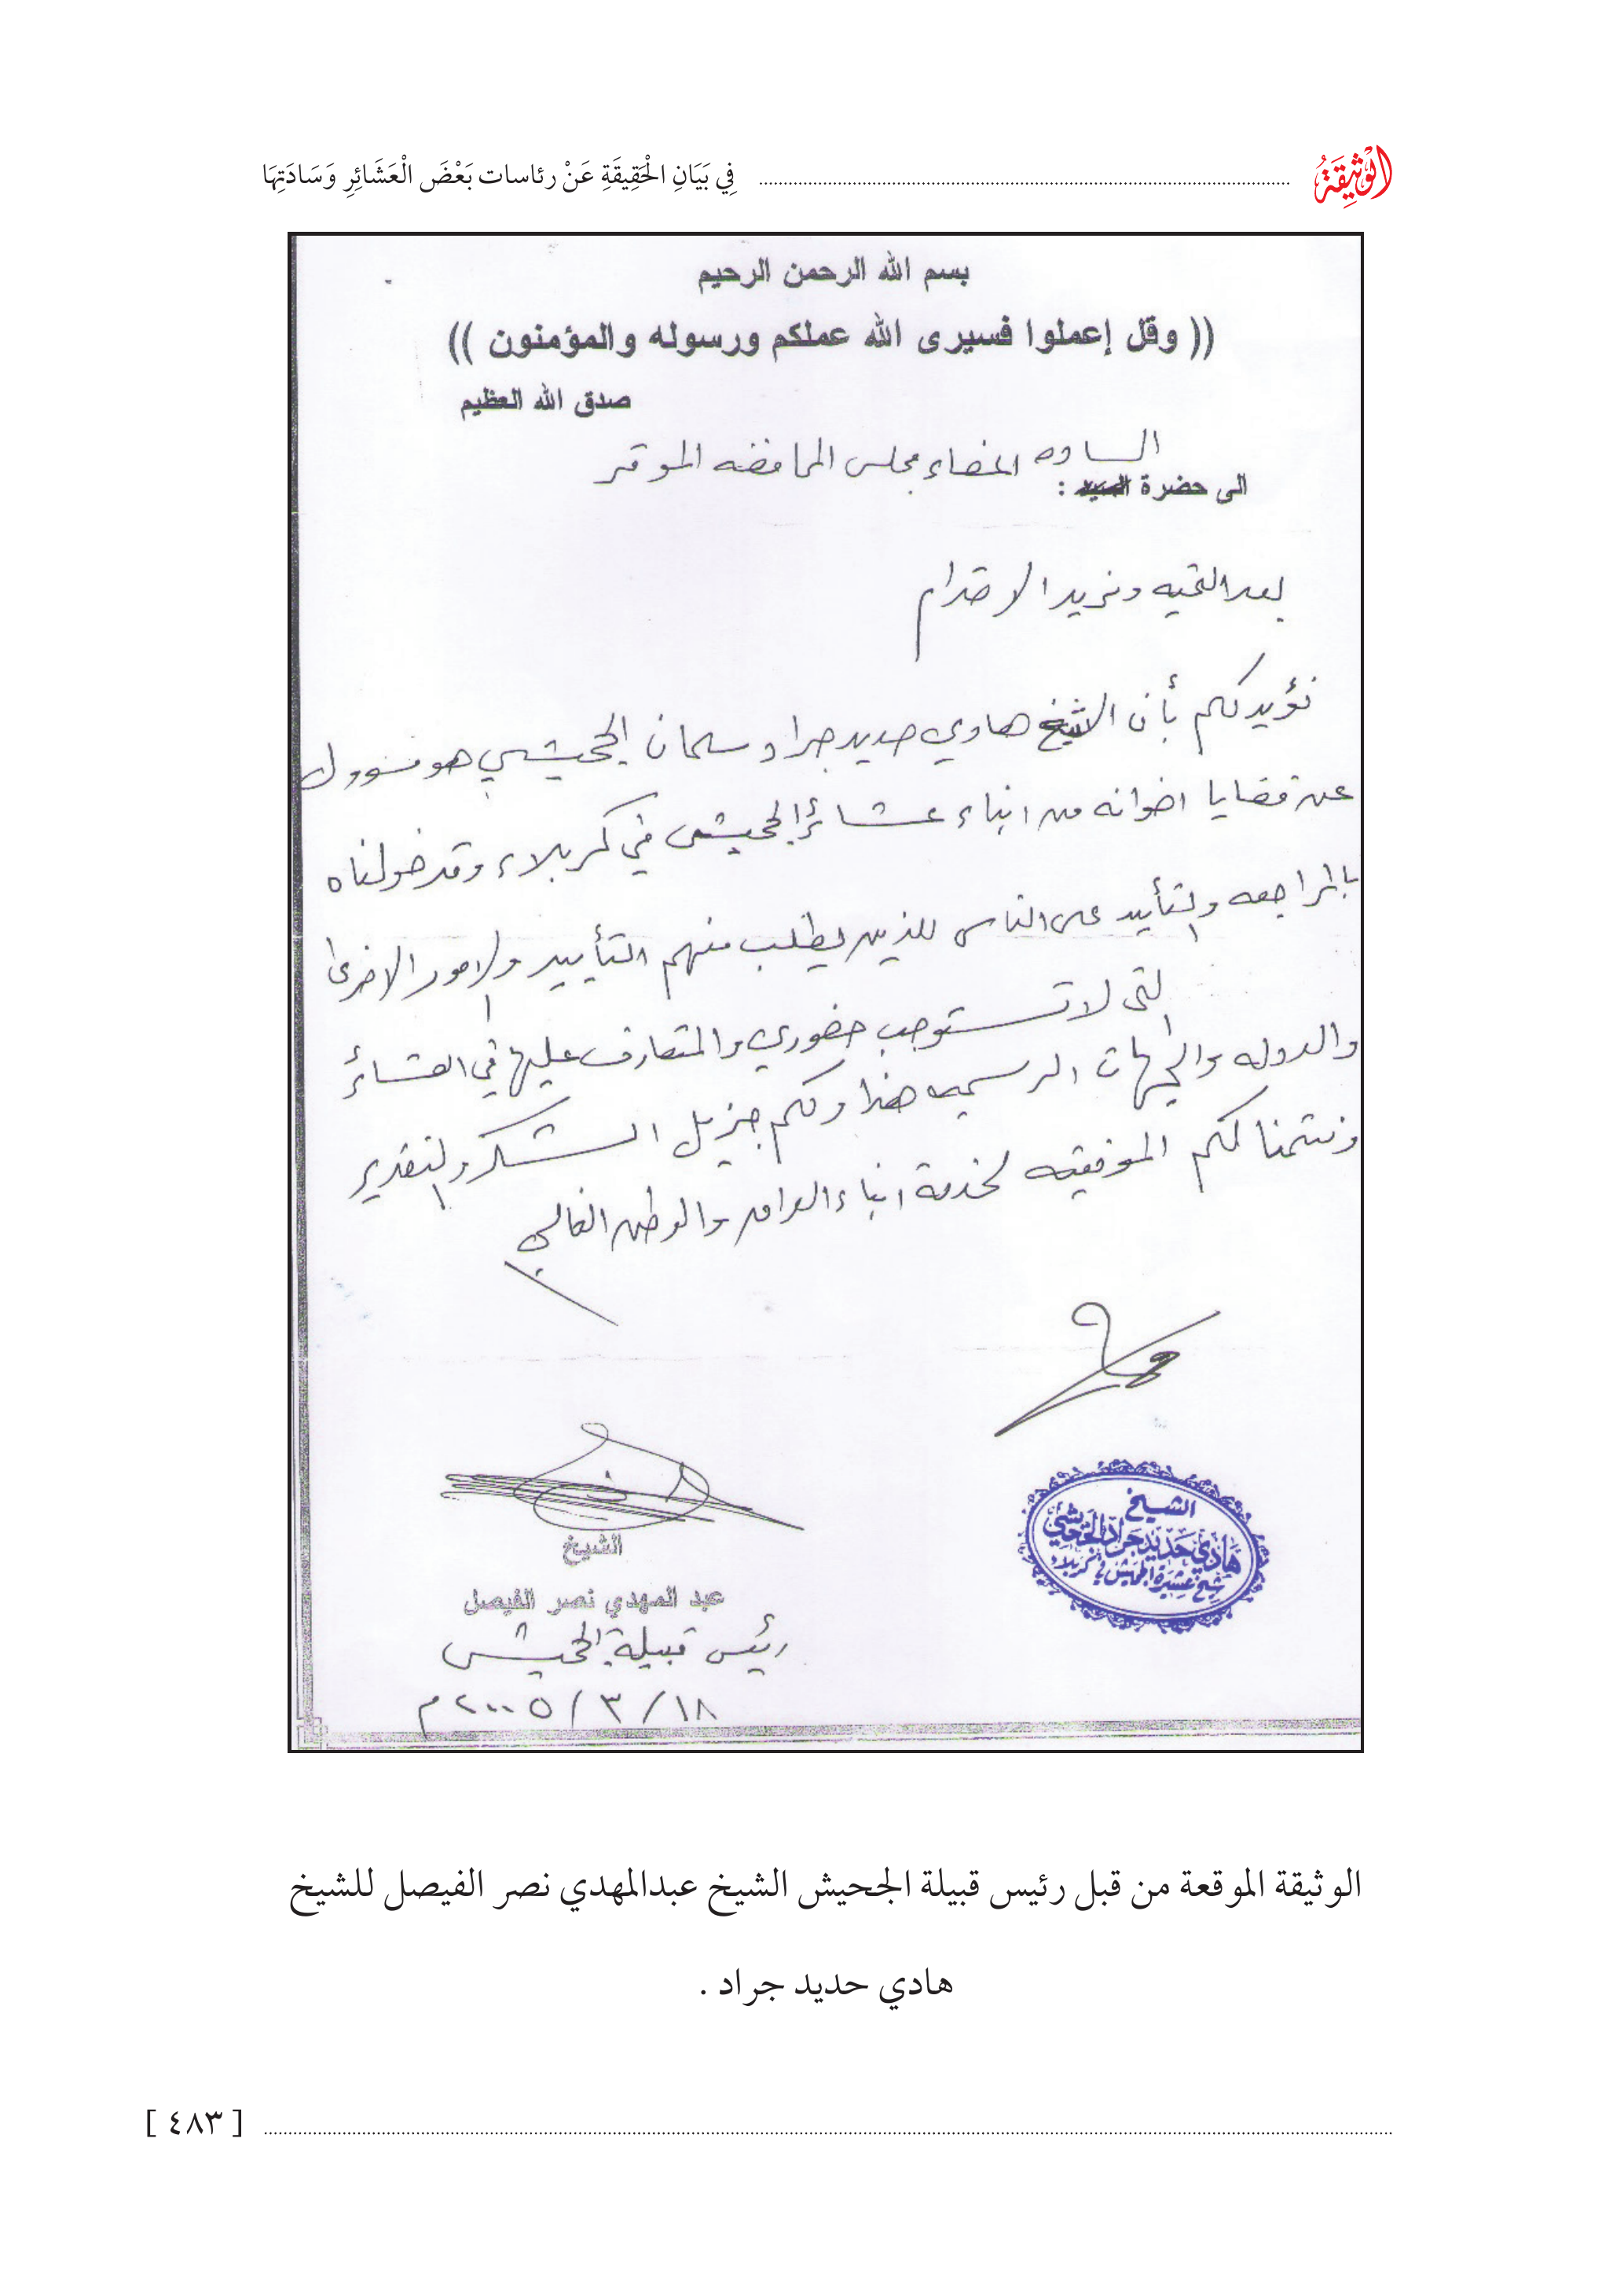 الوثيقة
فِي بَيَانِ الْحَقِيقَةِ عَنْ رئاسات بَعْضَ الْعَشَائِرِ وَسَادَتِهَا
بسم الله الرحمن الرحيم
(( وقل إعملوا فسيرى الله عملكم ورسوله والمؤمنون ))
صدق الله العظيم
الساده اعضاء مجلس المحافضه الموقر
الى حضرة السيد :
بعد التحيه ومزيد الاحترام
نؤيد لكم بأن الشيخ هادي حديد جراد سلمان الجحيشي هو مسوول
عن قضايا اخوانه من ابناء عشائر الجحيش في كربلاء وقد خولناه
بالمراجعه والتأييد على الناس للذين يطلب منهم التأييد والامور الاخرى
التي لا تستوجب حضوري والمتعارف عليها في العشائر
والدوله والجهات الرسميه هذا ولكم جزيل الشكر والتقدير
ونتمنا لكم الموفقيه لخدمة ابناء العراق والوطن الغالي
الشيخ
هادي حديد جراد الجحيشي
شيخ عشيرة الجحيش في كربلاء
الشيخ
عبد المهدي نصر الفيصل
رئيس قبيلة الجحيش
١٨/ ٣ / ٢٠٠٥ م
الوثيقة الموقعة من قبل رئيس قبيلة الجحيش الشيخ عبدالمهدي نصر الفيصل للشيخ
هادي حديد جراد .
[ ٤٨٣ ]